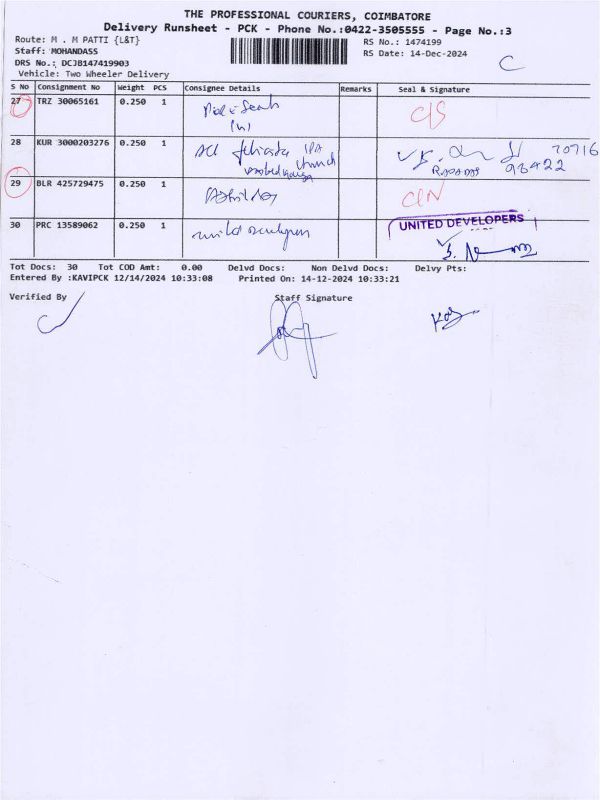 THE PROFESSIONAL COURIERS, COIMBATORE
Delivery Runsheet - PCK - Phone No.:0422-3505555 - Page No.:3
Route: M . M PATTI {L&T}
RS No.: 1474199
Staff: MOHANDASS
RS Date: 14-Dec-2024
DRS No.: DCJB147419903
C
Vehicle: Two Wheeler Delivery
S No Consignment No Weight PCS Consignee Details Remarks Seal & Signature
27 TRZ 30065161 0.250 1
C/S
28 KUR 3000203276 0.250 1
church
29 BLR 425729475 0.250 1
30 PRC 13589062 0.250 1
UNITED DEVELOPERS
Tot Docs: 30 Tot COD Amt: 0.00 Delvd Docs: Non Delvd Docs: Delvy Pts:
Entered By :KAVIPCK 12/14/2024 10:33:08 Printed On: 14-12-2024 10:33:21
Verified By Staff Signature